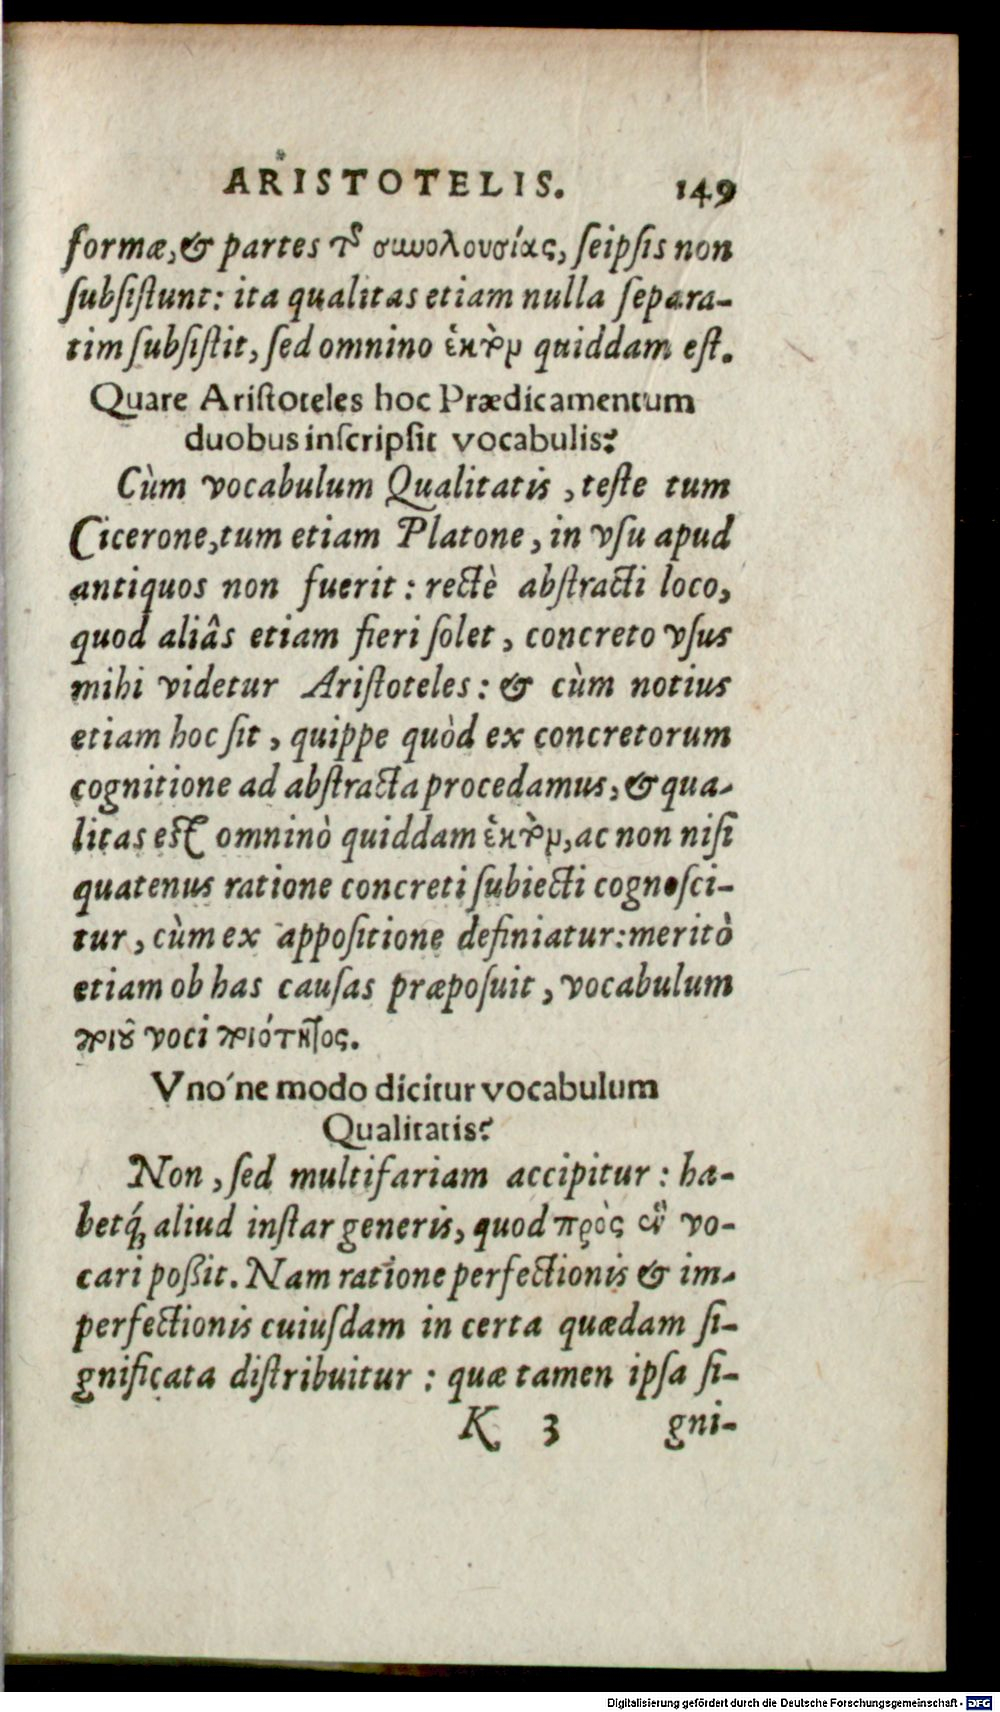 ARISTOTELIS. 149
formæ, & partes τῆς συνολουσίας, seipsis non
subsistunt: ita qualitas etiam nulla separa-
tim subsistit, sed omnino quiddam est.
Quare Aristoteles hoc Prædicamentum
duobus inscripsit vocabulis?
Cùm vocabulum Qualitatis, teste tum
Cicerone, tum etiam Platone, in vsu apud
antiquos non fuerit: rectè abstracti loco,
quod aliâs etiam fieri solet, concreto vsus
mihi videtur Aristoteles: & cùm notius
etiam hoc sit, quippe quòd ex concretorum
cognitione ad abstracta procedamus, & qua-
litas est omninò quiddam, ac non nisi
quatenus ratione concreti subiecti cognosci-
tur, cùm ex appositione definiatur: meritò
etiam ob has causas præposuit, vocabulum
ποιοῦ voci ποιότητος.
Vno'ne modo dicitur vocabulum
Qualitatis?
Non, sed multifariam accipitur: ha-
betq́; aliud instar generis, quod πρὸς ἓν vo-
cari poßit. Nam ratione perfectionis & im-
perfectionis cuiusdam in certa quædam si-
gnificata distribuitur: quæ tamen ipsa si-
K 3 gni-
Digitalisierung gefördert durch die Deutsche Forschungsgemeinschaft - DFG